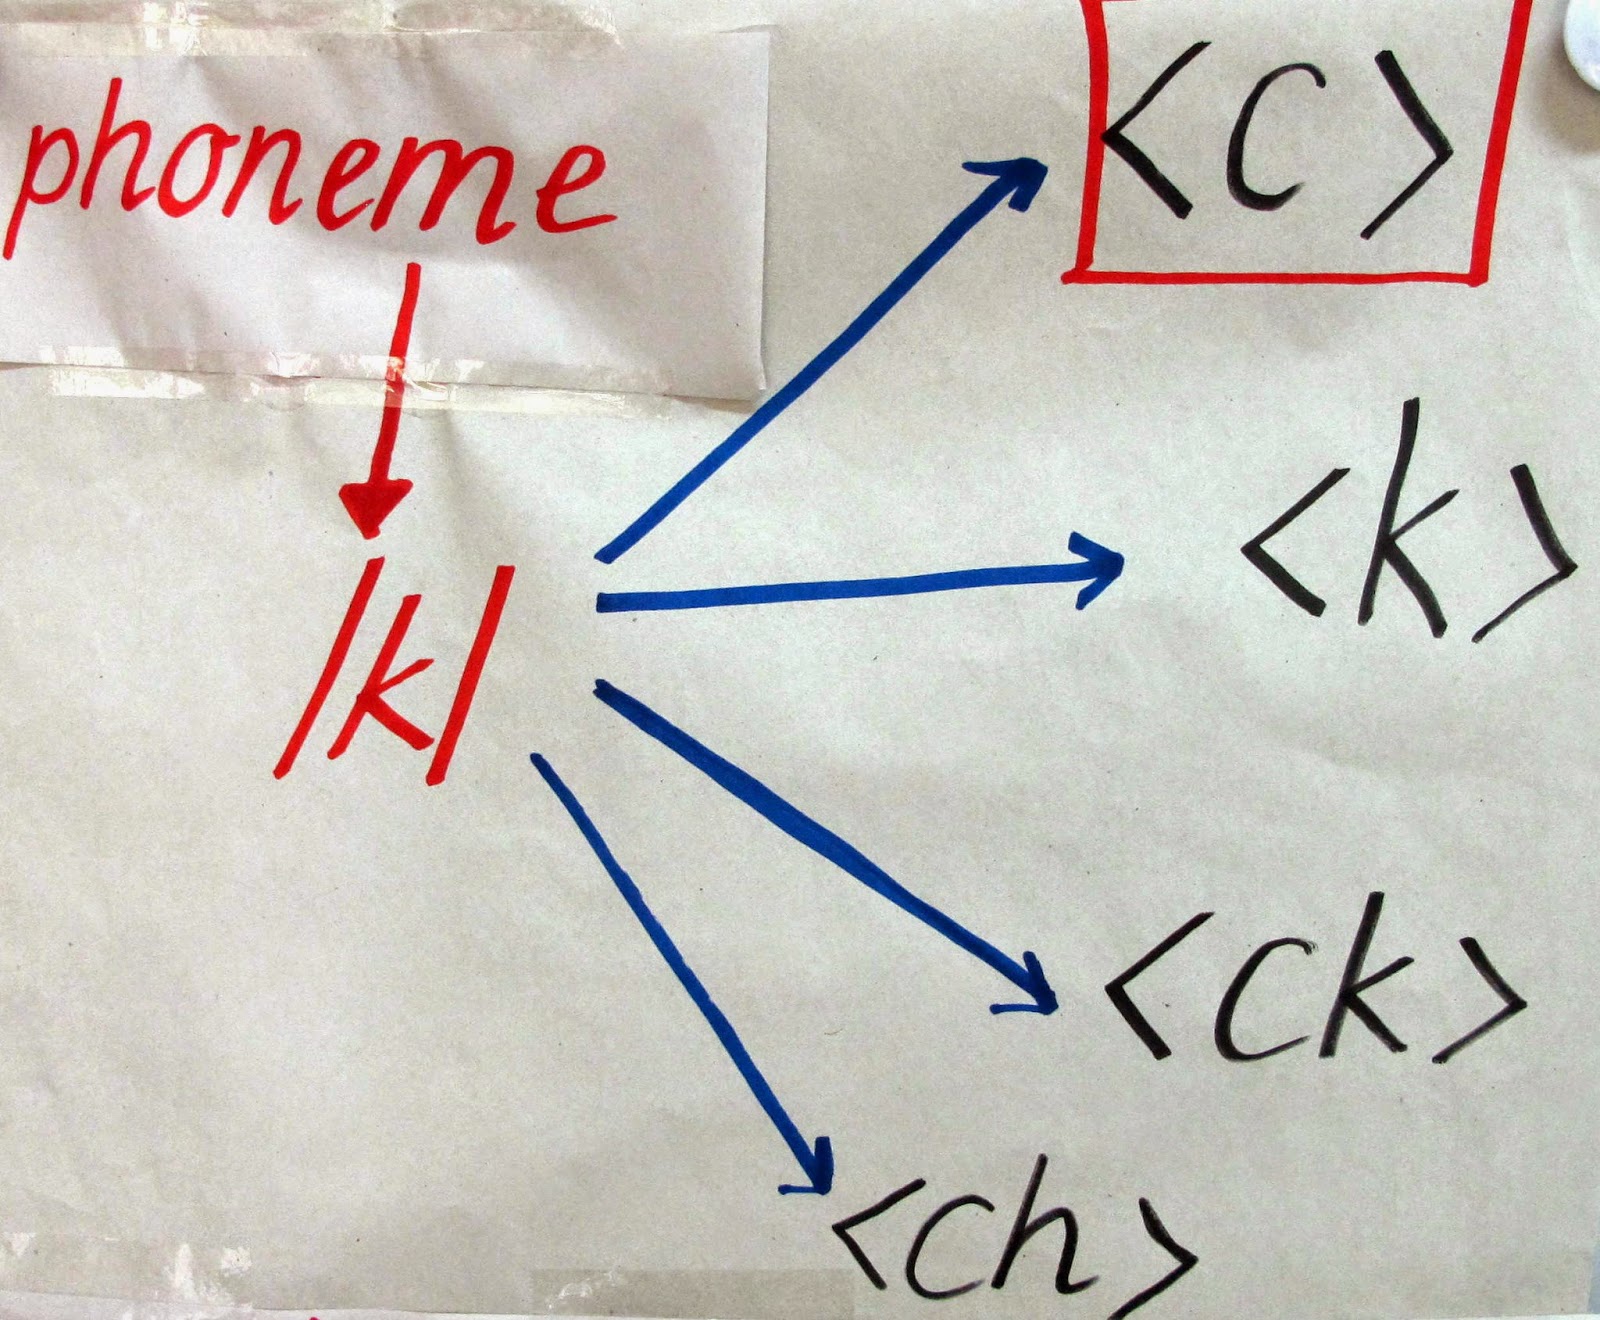 phoneme
<c>
<k>
/k/
<ck>
<ch>